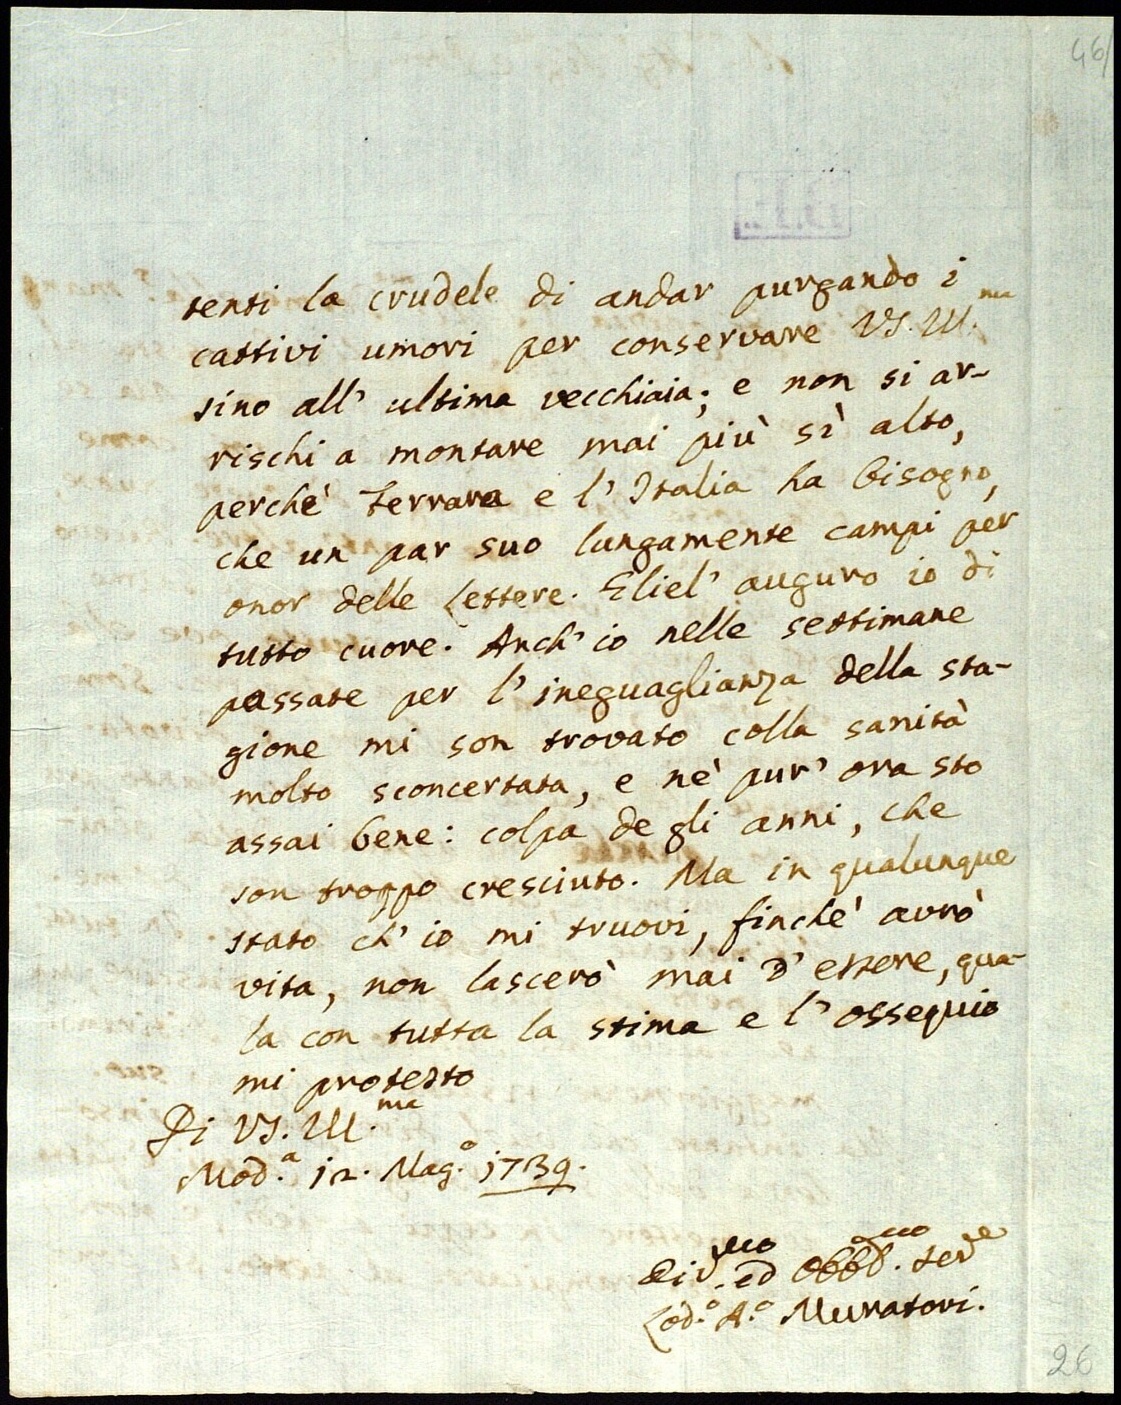 46/
tenti la crudele di andar purgando i
cattivi umori per conservare VS. Ill.ma
sino all' ultima vecchiaia; e non si ar-
rischi a montare mai più sì alto,
perchè Ferrara e l' Italia ha bisogno,
che un par suo lungamente campi per
onor delle Lettere. Eliel' auguro io di
tutto cuore. Anch' io nelle settimane
passate per l' ineguaglianza della sta-
gione mi son trovato colla sanità
molto sconcertata, e nè pur' ora sto
assai bene: colpa degli anni, che
son troppo cresciuto. Ma in qualunque
stato ch' io mi truovi, finchè avrò
vita, non lascerò mai d' essere, qua-
la con tutta la stima e l' ossequio
mi protesto
Di VS. Ill.ma
Mod.a 12. Mag.o 1739.
Div.mo ed Obbl.mo ser.e
Lod.o A.o Muratori.
26